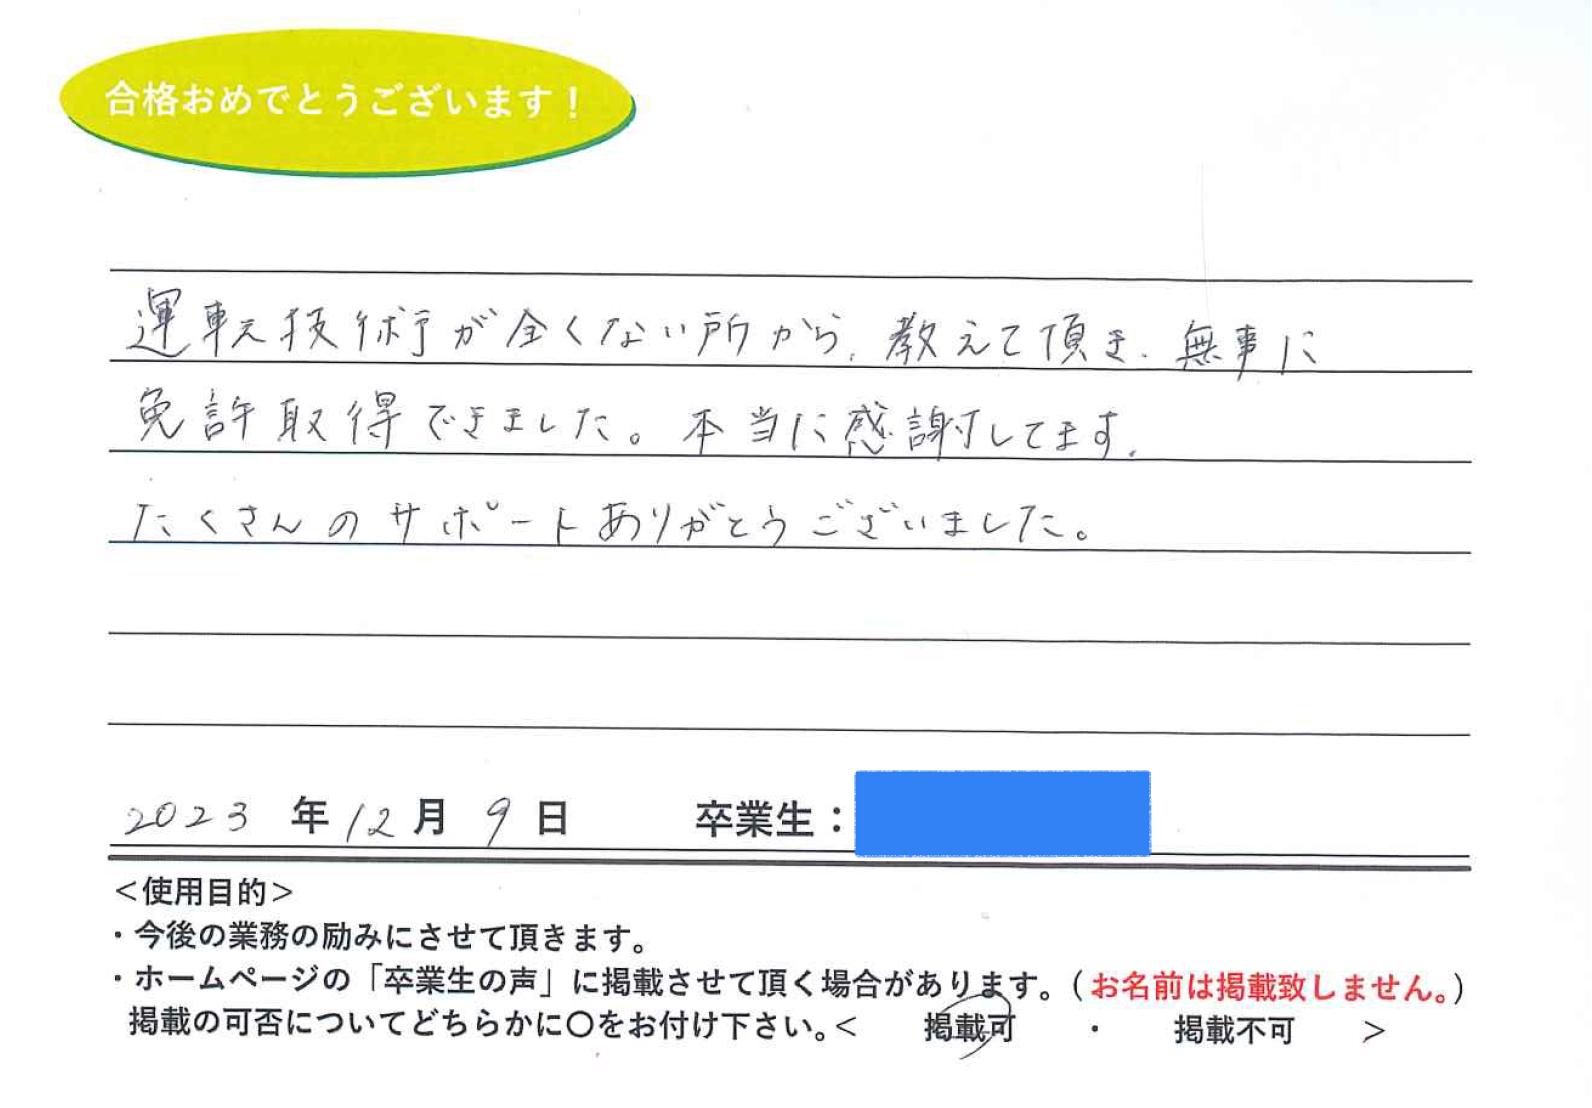 合格おめでとうございます！
運転技術が全くない所から、教えて頂き、無事に
免許取得できました。本当に感謝してます。
たくさんのサポートありがとうございました。
2023 年 12 月 9 日 卒業生：
＜使用目的＞
・今後の業務の励みにさせて頂きます。
・ホームページの「卒業生の声」に掲載させて頂く場合があります。（お名前は掲載致しません。）
掲載の可否についてどちらかに〇をお付け下さい。＜ 掲載可 ・ 掲載不可 ＞